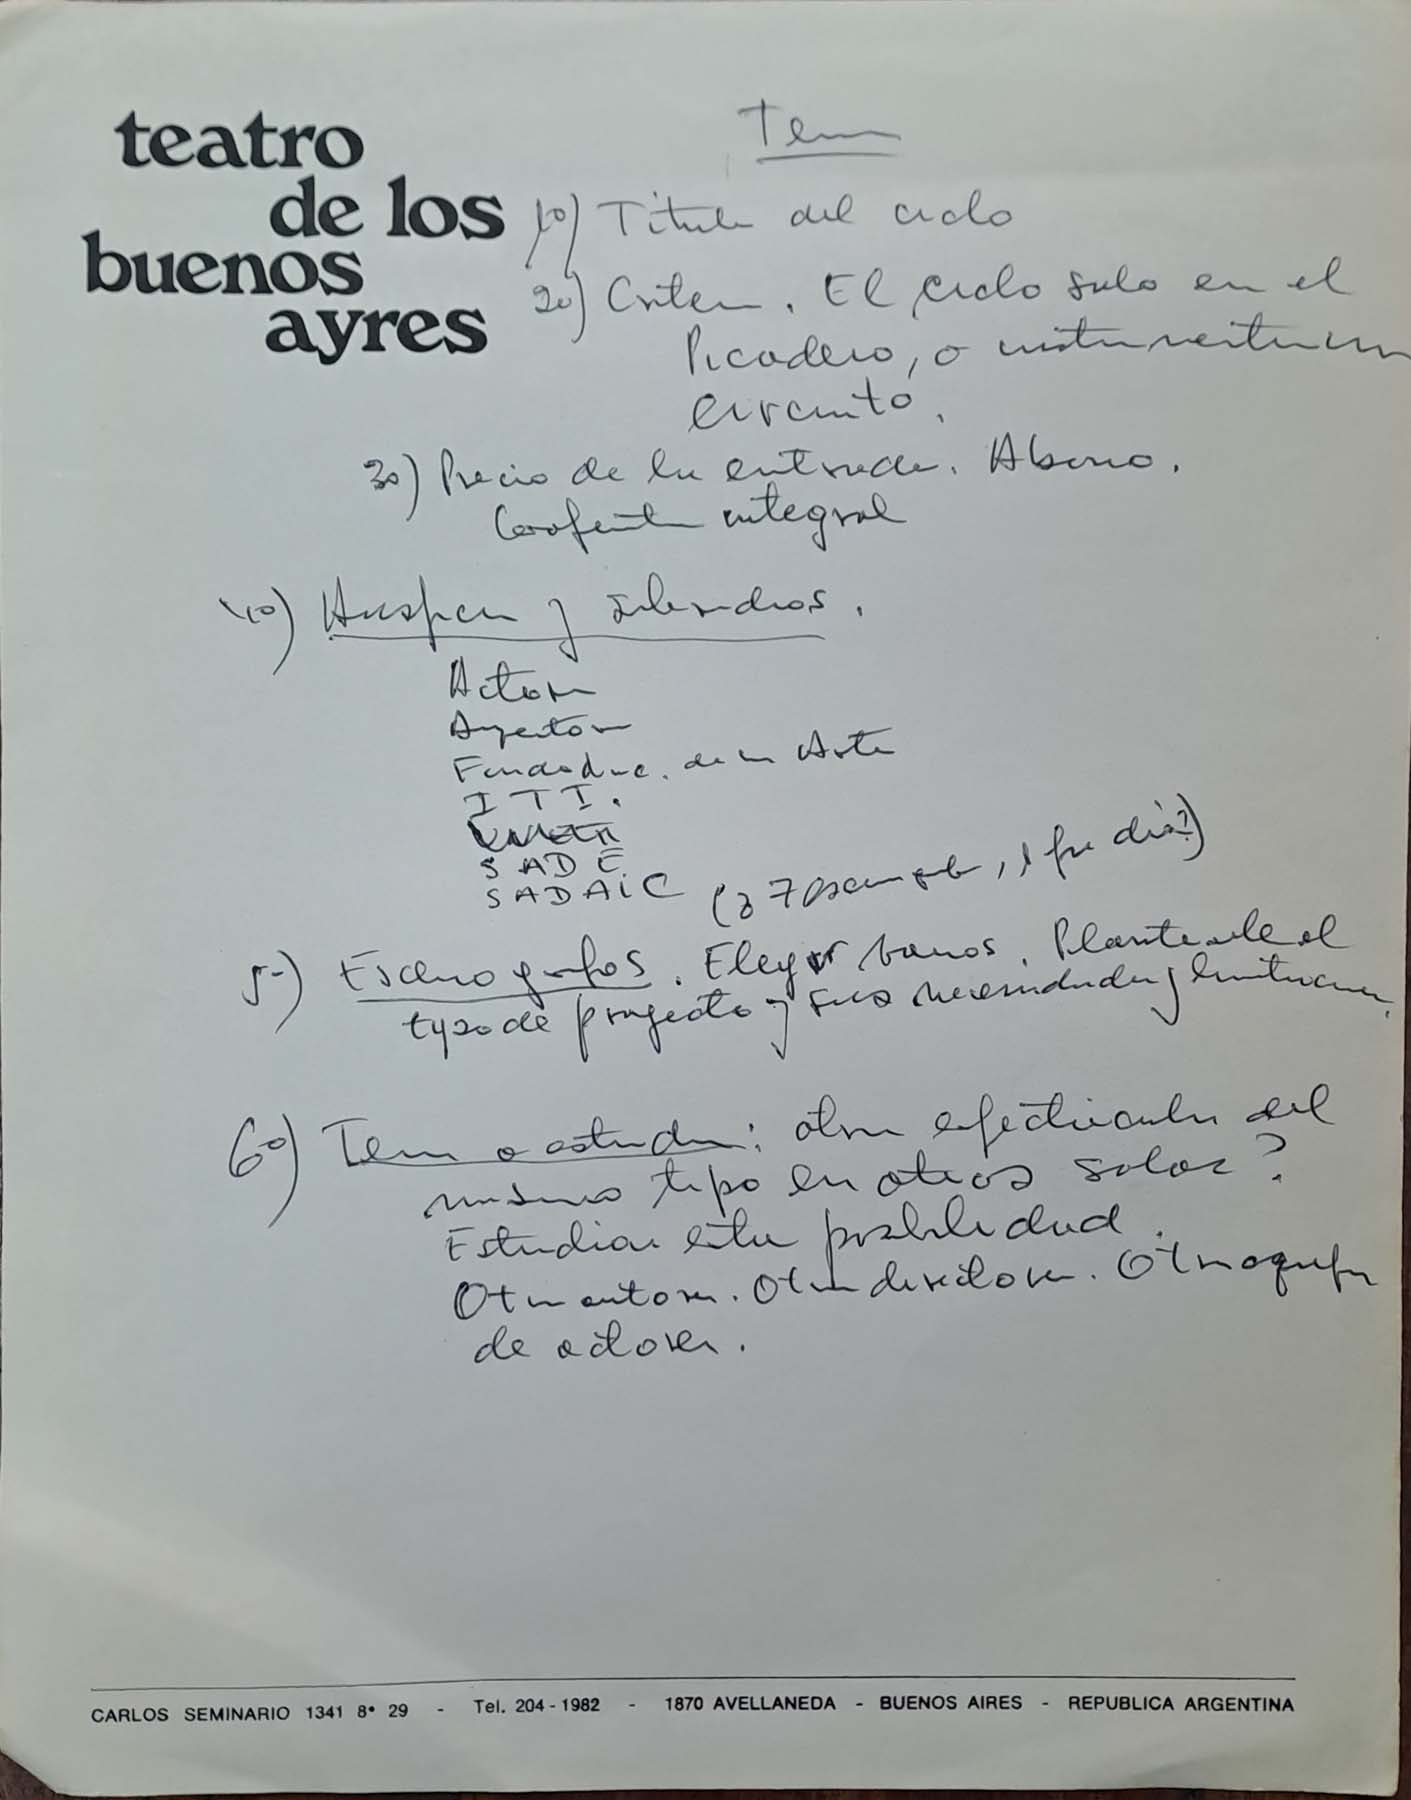 teatro
de los
buenos
ayres
Temas
1o) Titulo del ciclo
2o) Criterio. El ciclo solo en el
Picadero, o
circuito.
3o) Precio de la entrada. Abono.
integral
4o) Auspicios y subsidios.
Actores
Argentores
Fondo de las Artes
I T I.
SADE
SADAIC
5-) Escenografos. Elegir varios. Plantearle el
tipo de proyecto y sus necesidades y limitaciones.
6o) Tema a estudiar: otros espectáculos del
mismo tipo en otras salas?
Estudiar esta posibilidad.
Otros autores. Otros directores. Otros equipos
de actores.
CARLOS SEMINARIO 1341 8º 29 - Tel. 204-1982 - 1870 AVELLANEDA - BUENOS AIRES - REPUBLICA ARGENTINA